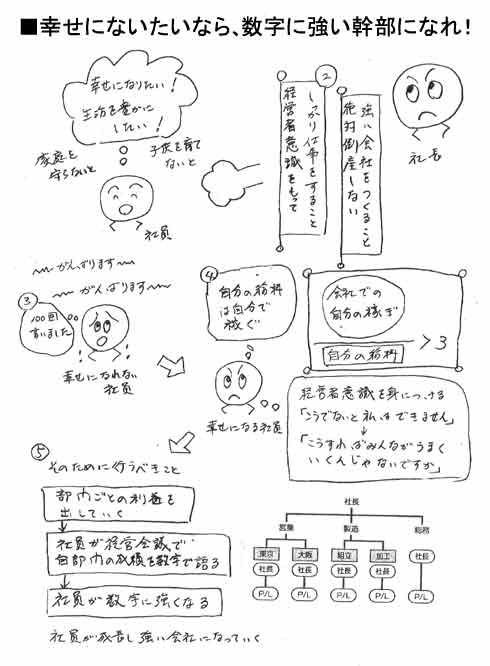 ■幸せにないたいなら、数字に強い幹部になれ！
幸せになりたい！
生活を豊かに
したい！
家庭を
守らないと
子供を育て
ないと
社員
②
しっかり仕事をすること
経営者意識をもって
強い会社をつくること
絶対倒産しない
社長
～がんばります～
～がんばります～
③
100回
言いました
幸せになれない
社員
④
自分の給料
は自分で
稼ぐ
幸せになる社員
会社での
自分の稼ぎ
自分の給料
＞3
経営者意識を身につける
「こうでないと私はできません」
↓
「こうすればみんながうまく
いくんじゃないですか」
⑤
そのために行うべきこと
部内ごとの利益を
出していく
社員が経営会議で
自部内の成績を数字で語る
社員が数字に強くなる
社員が成長し強い会社になっていく
社長
営業
製造
総務
東京
大阪
組立
加工
社長
社長
社長
社長
社長
P/L
P/L
P/L
P/L
P/L